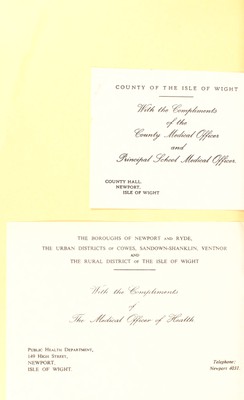 COUNTY OF THE ISLE OF WIGHT
With the Compliments
of the
County Medical Officer
and
Principal School Medical Officer.
COUNTY HALL,
NEWPORT,
ISLE OF WIGHT
THE BOROUGHS OF NEWPORT AND RYDE,
THE URBAN DISTRICTS OF COWES, SANDOWN-SHANKLIN, VENTNOR
AND
THE RURAL DISTRICT OF THE ISLE OF WIGHT
With the Compliments
of
The Medical Officer of Health
PUBLIC HEALTH DEPARTMENT,
149 HIGH STREET,
NEWPORT,
ISLE OF WIGHT.
Telephone:
Newport 4031.